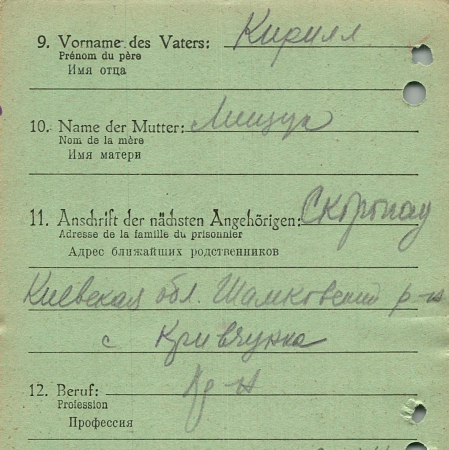 9. Vorname des Vaters: Кирилл
Prénom du père
Имя отца
10. Name der Mutter: Лищук
Nom de la mère
Имя матери
11. Anschrift der nächsten Angehörigen:
Adresse de la famille du prisonnier
Адрес ближайших родственников
Киевская обл. р-н
с Кривчунка
12. Beruf:
Profession
Профессия